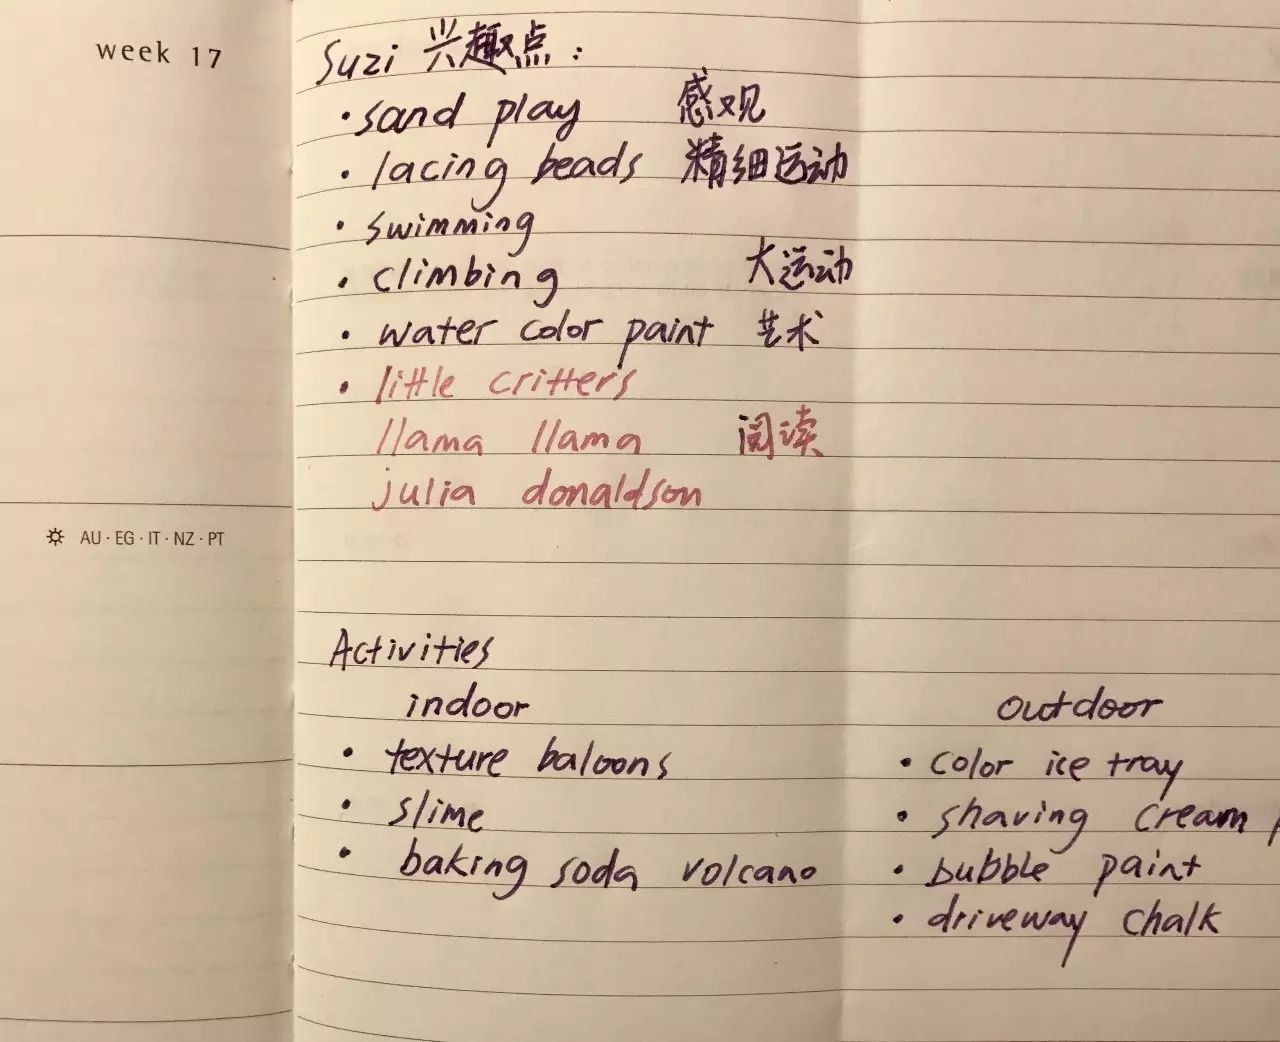 week 17
Suzi 兴趣点：
• sand play 感观
• lacing beads 精细运动
• swimming
• climbing 大运动
• water color paint 艺术
• little critters
llama llama 阅读
julia donaldson
AU · EG · IT · NZ · PT
Activities
indoor outdoor
• texture baloons • color ice tray
• slime • shaving cream
• baking soda volcano • bubble paint
• driveway chalk